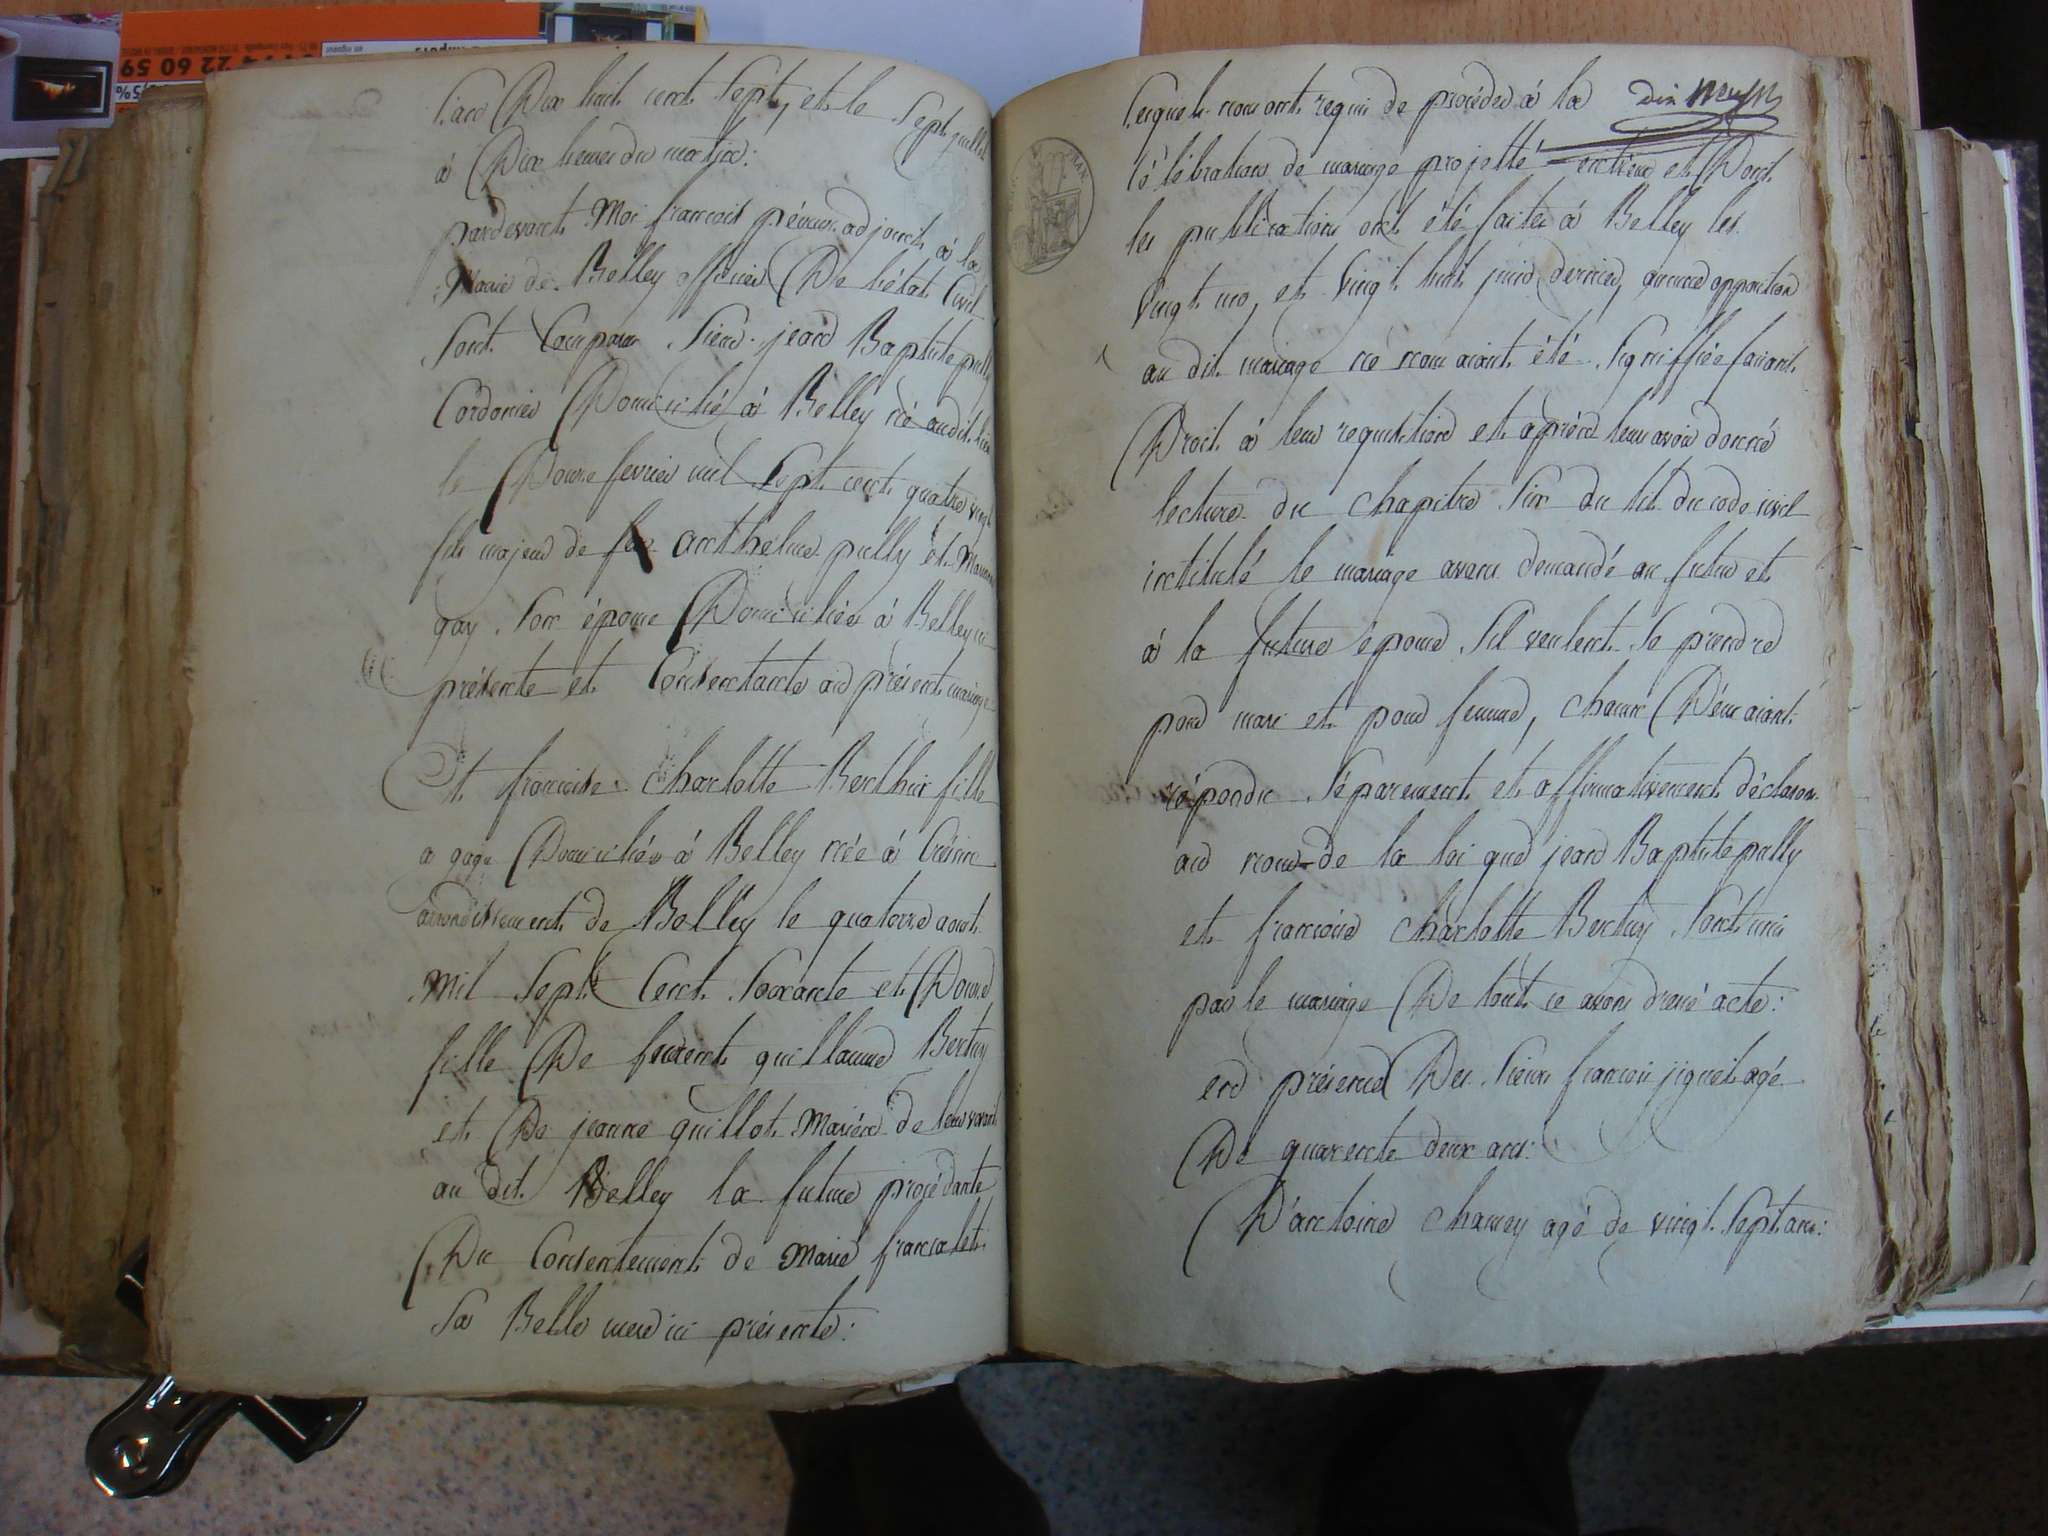 L'an Dix huit cent Sept, et le Sept juillet
à Dix heures du matin:
pardevant Moi francois adjoint à la
Mairie de Belley officier De l'état Civil
Sont Comparu Sieur jean Baptiste pully
Cordonier Domicilié à Belley né audit lieu
le Douze fevrier mil Sept cent quatre vingt
fils majeur de feu anthelme pully et
gay Son épouse Domiciliée à Belley ici
présente et Consentante au présent mariage
Et francoise Charlotte Berthui fille
a gage Domiciliée à Belley née à
arrondissement de Belley le quatorze aout
Mil Sept Cent Soixante et Douze
fille De guillaume Bertuy
et De jeanne guillot Mariés de leur vivant
au dit Belley la future procédante
Du Consentement de Marie francalet
Sa Belle mere ici présente:
60 59
Lesquels nous ont requis de procéder à la
célébration du mariage projetté entreux et Dont
les publications ont été faites à Belley les
Vingt un, et Vingt huit juin dernier, aucune opposition
au dit mariage ne nous aiant été Signiffiée faisant
Droit à leur requisition et après leur avoir donné
lecture du chapitre Six du tit. du code civil
intitulé le mariage avons demandé au futur et
à la future épouse S'il veulent Se prendre
pour mari et pour femme, chacun D'eux aiant
répondu Séparement et affirmativement déclarons
au nom de la loi que jean Baptiste pully
et francoise charlotte Bertuy Sont unis
par le mariage De tout ce avons dressé acte:
en présence Des Sieurs francois jiguet agé
De quarente deux ans:
D'antoine chamey agé de vingt Sept ans: